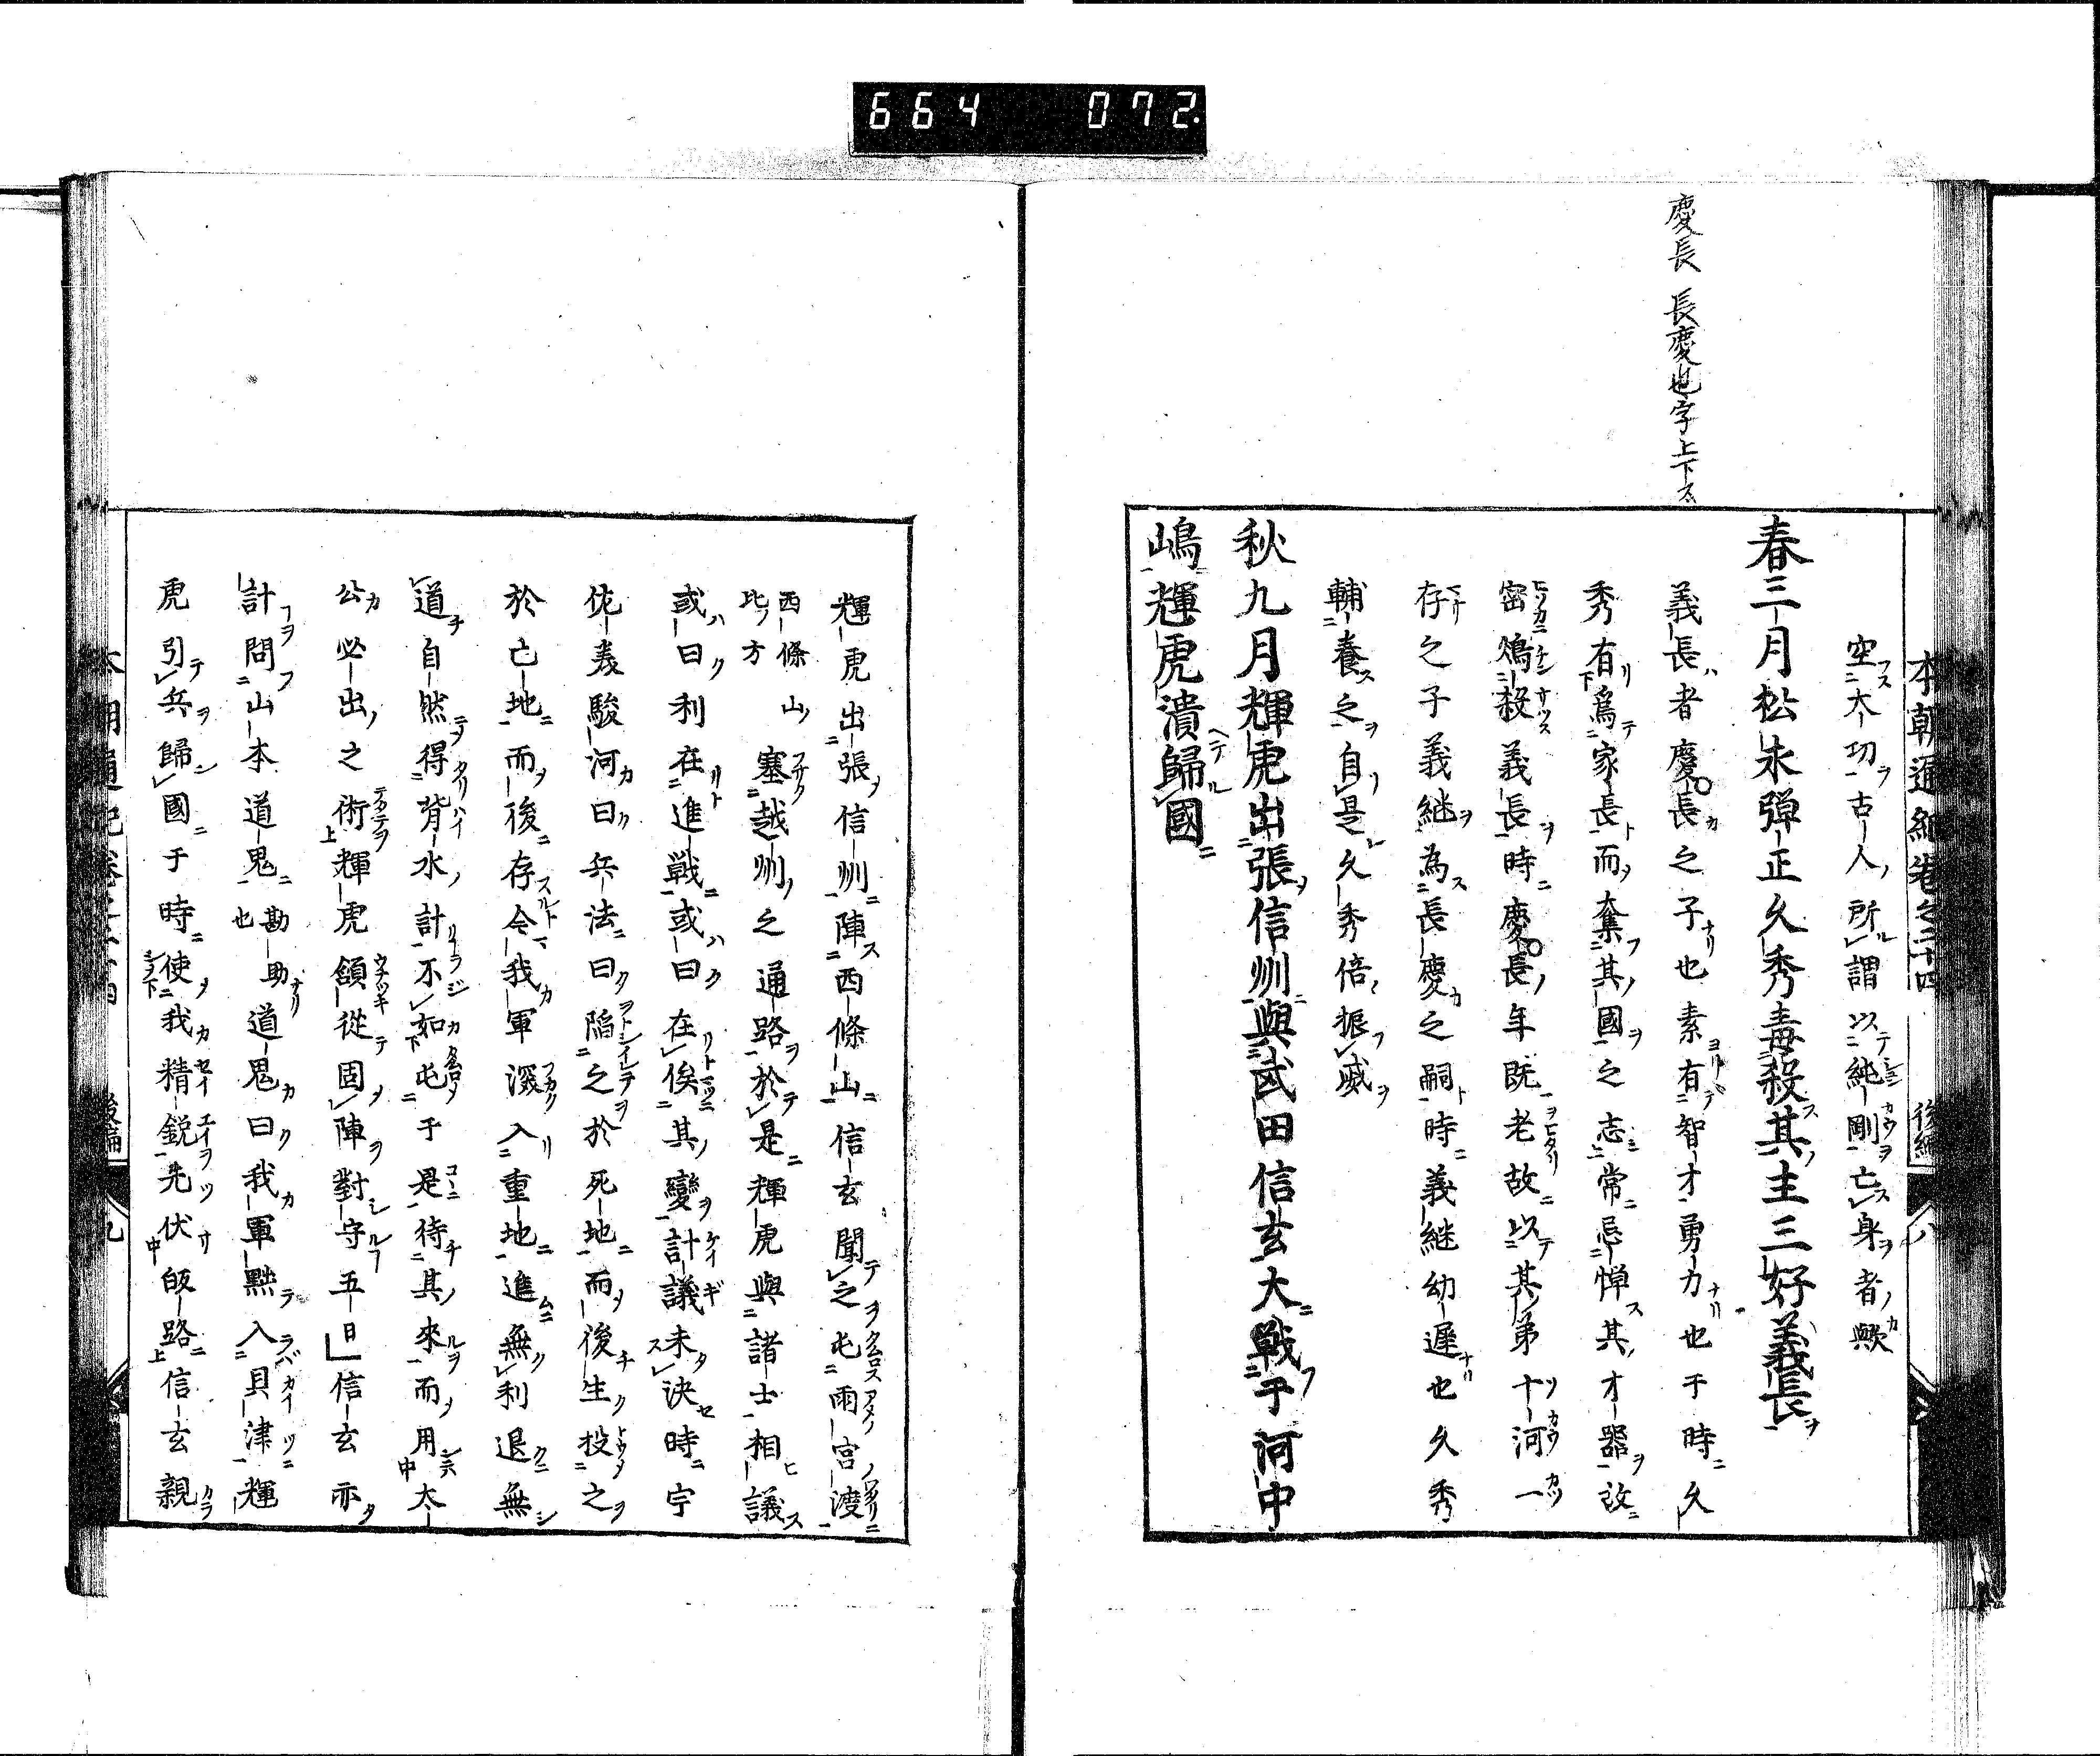 664 072.
慶長 長慶也字上下ス
本朝通紀卷之二十四 後編 八
空大功古人所謂以純剛亡身者歟
春三月松永彈正久秀毒殺其主三好義長
義長者慶長之子也素有智才勇力也于時久
秀有為家長而奪其國之志常忌憚其才器故
密鴆殺義長時慶長年既老故以其弟十河一
存之子義継為長慶之嗣時義継幼遲也久秀
輔養之自是久秀倍振威
秋九月輝虎出張信州與武田信玄大戰于河中
嶋輝虎潰歸國
輝虎出張信州陣西條山信玄聞之屯雨宮渡
西條山比方塞越州之通路於是輝虎與諸士相議
或曰利在進戦或曰在俟其變計議未决時宇
佐美駿河曰兵法曰陷之於死地而後生投之
於亡地而後存今我軍深入重地進無利退無
道自然得背水計不如屯于是待其來而用太
公必出之術輝虎頷從固陣對守五日信玄亦
計問山本道鬼勘助也道鬼曰我軍黙入貝津輝
虎引兵歸國于時使我精鋭先伏皈路信玄親
本朝通紀卷之二十四 後編 九